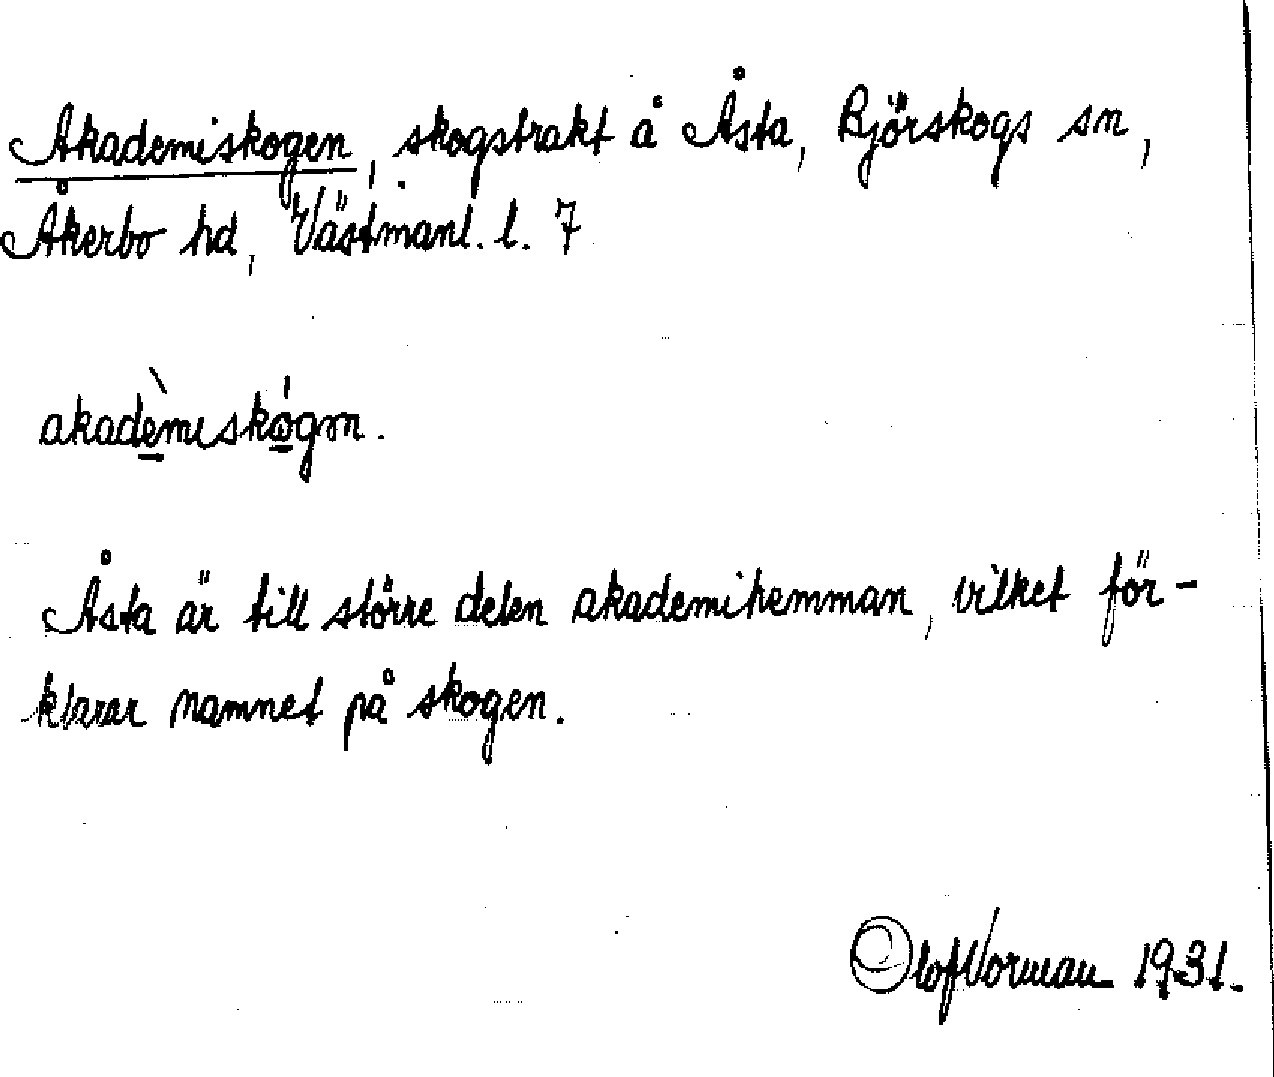 Akademiskogen, skogstrakt å Åsta, Björskogs sn,
Åkerbo hd, Västmanl. l. 7
akadèmıskógən.
Åsta är till större delen akademihemman, vilket för-
klarar namnet på skogen.
Olof Vorman 1931.